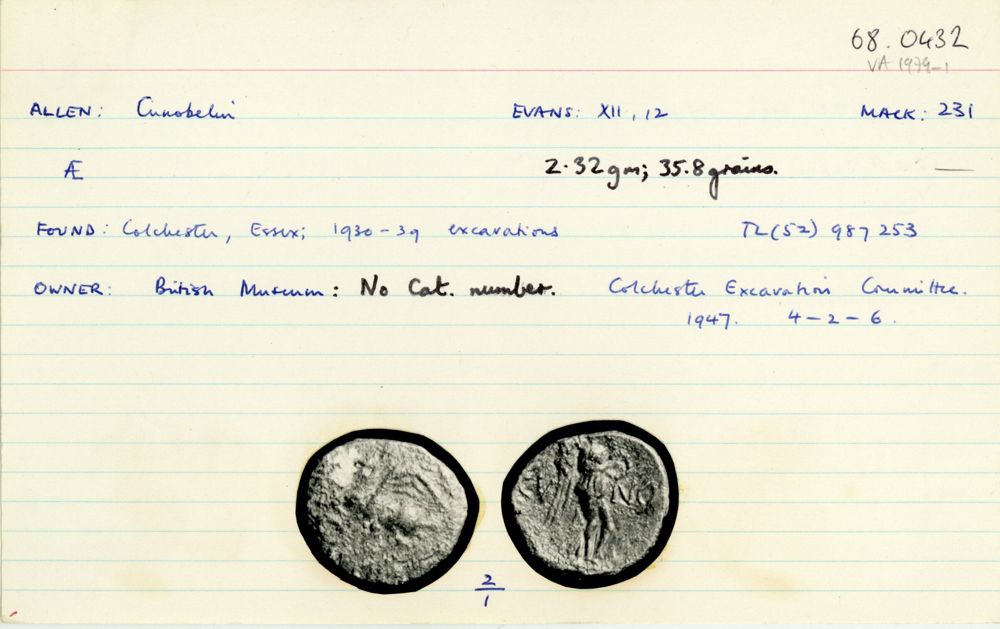 68.0432
VA 1979-1
ALLEN: Cunobelin EVANS: XII, 12 MACK: 231
Æ 2.32gm; 35.8 grains. —
FOUND: Colchester, Essex; 1930-39 excavations TL(52) 987 253
OWNER: British Museum: No Cat. number. Colchester Excavation Committee.
1947. 4-2-6.
NO
2
1